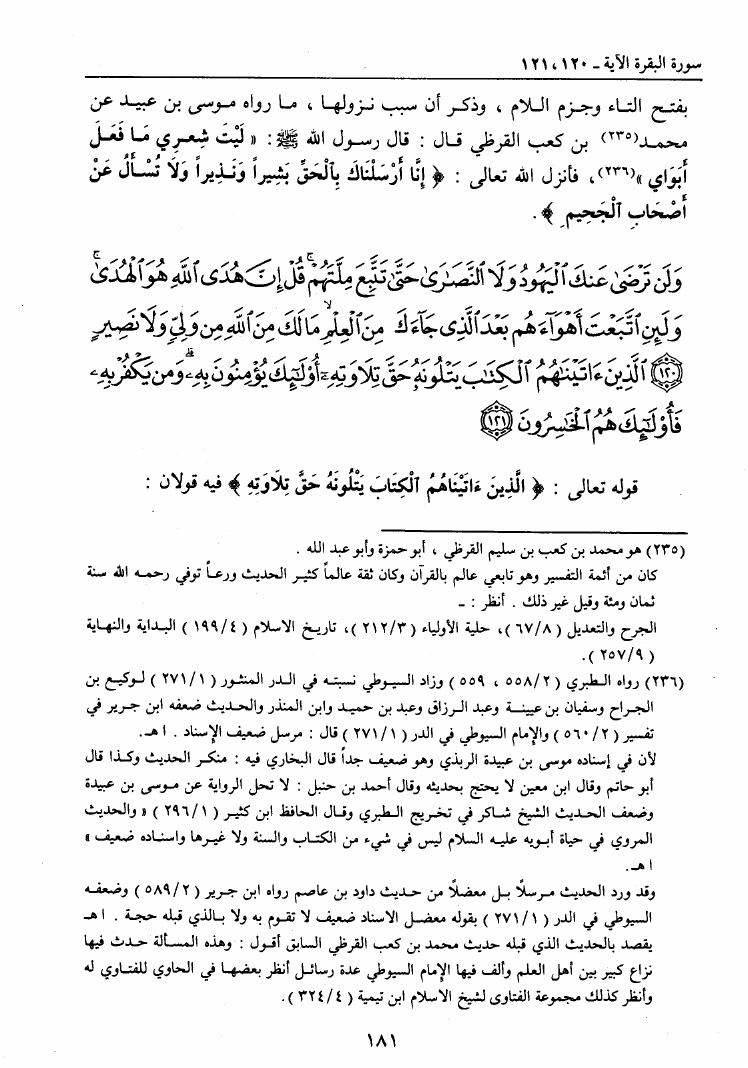 سورة البقرة الآية ـ ١٢٠، ١٢١
بفتح التاء وجزم اللام ، وذكر أن سبب نزولها ، ما رواه موسى بن عبيد عن
محمد(٢٣٥) بن كعب القرظي قال : قال رسول الله ﷺ : « لَيْتَ شِعرِي مَا فَعَلَ
أَبَوَاي »(٢٣٦)، فأنزل الله تعالى : ﴿ إِنَّا أَرْسَلْنَاكَ بِٱلْحَقِّ بَشِيراً وَنَذِيراً وَلَا تُسْأَلُ عَنْ
أَصْحَابِ ٱلْجَحِيمِ ﴾.
وَلَن تَرْضَىٰ عَنكَ ٱلْيَهُودُ وَلَا ٱلنَّصَـٰرَىٰ حَتَّىٰ تَتَّبِعَ مِلَّتَهُمْ ۗ قُلْ إِنَّ هُدَى ٱللَّهِ هُوَ ٱلْهُدَىٰ ۗ
وَلَئِنِ ٱتَّبَعْتَ أَهْوَآءَهُم بَعْدَ ٱلَّذِى جَآءَكَ مِنَ ٱلْعِلْمِ ۙ مَا لَكَ مِنَ ٱللَّهِ مِن وَلِىٍّ وَلَا نَصِيرٍ
﴿١٢٠﴾ ٱلَّذِينَ ءَاتَيْنَـٰهُمُ ٱلْكِتَـٰبَ يَتْلُونَهُۥ حَقَّ تِلَاوَتِهِۦٓ أُو۟لَـٰٓئِكَ يُؤْمِنُونَ بِهِۦ ۗ وَمَن يَكْفُرْ بِهِۦ
فَأُو۟لَـٰٓئِكَ هُمُ ٱلْخَـٰسِرُونَ ﴿١٢١﴾
قوله تعالى : ﴿ الَّذِينَ ءَاتَيْنَاهُمُ ٱلْكِتَابَ يَتْلُونَهُ حَقَّ تِلَاوَتِهِ ﴾ فيه قولان :
(٢٣٥) هو محمد بن كعب بن سليم القرظي ، أبو حمزة وأبو عبد الله .
كان من أئمة التفسير وهو تابعي عالم بالقرآن وكان ثقة عالماً كثير الحديث ورعاً توفي رحمه الله سنة
ثمان ومئة وقيل غير ذلك . أنظر : ـ
الجرح والتعديل ( ٦٧/٨ )، حلية الأولياء ( ٢١٢/٣ )، تاريخ الاسلام ( ١٩٩/٤ ) البداية والنهاية
( ٢٥٧/٩ ).
(٢٣٦) رواه الطبري ( ٥٥٨/٢ ، ٥٥٩ ) وزاد السيوطي نسبته في الدر المنثور ( ٢٧١/١ ) لوكيع بن
الجراح وسفيان بن عيينة وعبد الرزاق وعبد بن حميد وابن المنذر والحديث ضعفه ابن جرير في
تفسير ( ٥٦٠/٢ ) والإمام السيوطي في الدر ( ٢٧١/١ ) قال : مرسل ضعيف الإسناد . ا هـ.
لأن في إسناده موسى بن عبيدة الربذي وهو ضعيف جداً قال البخاري فيه : منكر الحديث وكذا قال
أبو حاتم وقال ابن معين لا يحتج بحديثه وقال أحمد بن حنبل : لا تحل الرواية عن موسى بن عبيدة
وضعف الحديث الشيخ شاكر في تخريج الطبري وقال الحافظ ابن كثير ( ٢٩٦/١ ) « والحديث
المروي في حياة أبويه عليه السلام ليس في شيء من الكتاب والسنة ولا غيرها واسناده ضعيف »
ا هـ.
وقد ورد الحديث مرسلاً بل معضلاً من حديث داود بن عاصم رواه ابن جرير ( ٥٨٩/٢ ) وضعفه
السيوطي في الدر ( ٢٧١/١ ) بقوله معضل الاسناد ضعيف لا تقوم به ولا بالذي قبله حجة . ا هـ
يقصد بالحديث الذي قبله حديث محمد بن كعب القرظي السابق أقول : وهذه المسألة حدث فيها
نزاع كبير بين أهل العلم وألف فيها الإمام السيوطي عدة رسائل أنظر بعضها في الحاوي للفتاوي له
وأنظر كذلك مجموعة الفتاوى لشيخ الاسلام ابن تيمية ( ٣٢٤/٤ ).
١٨١